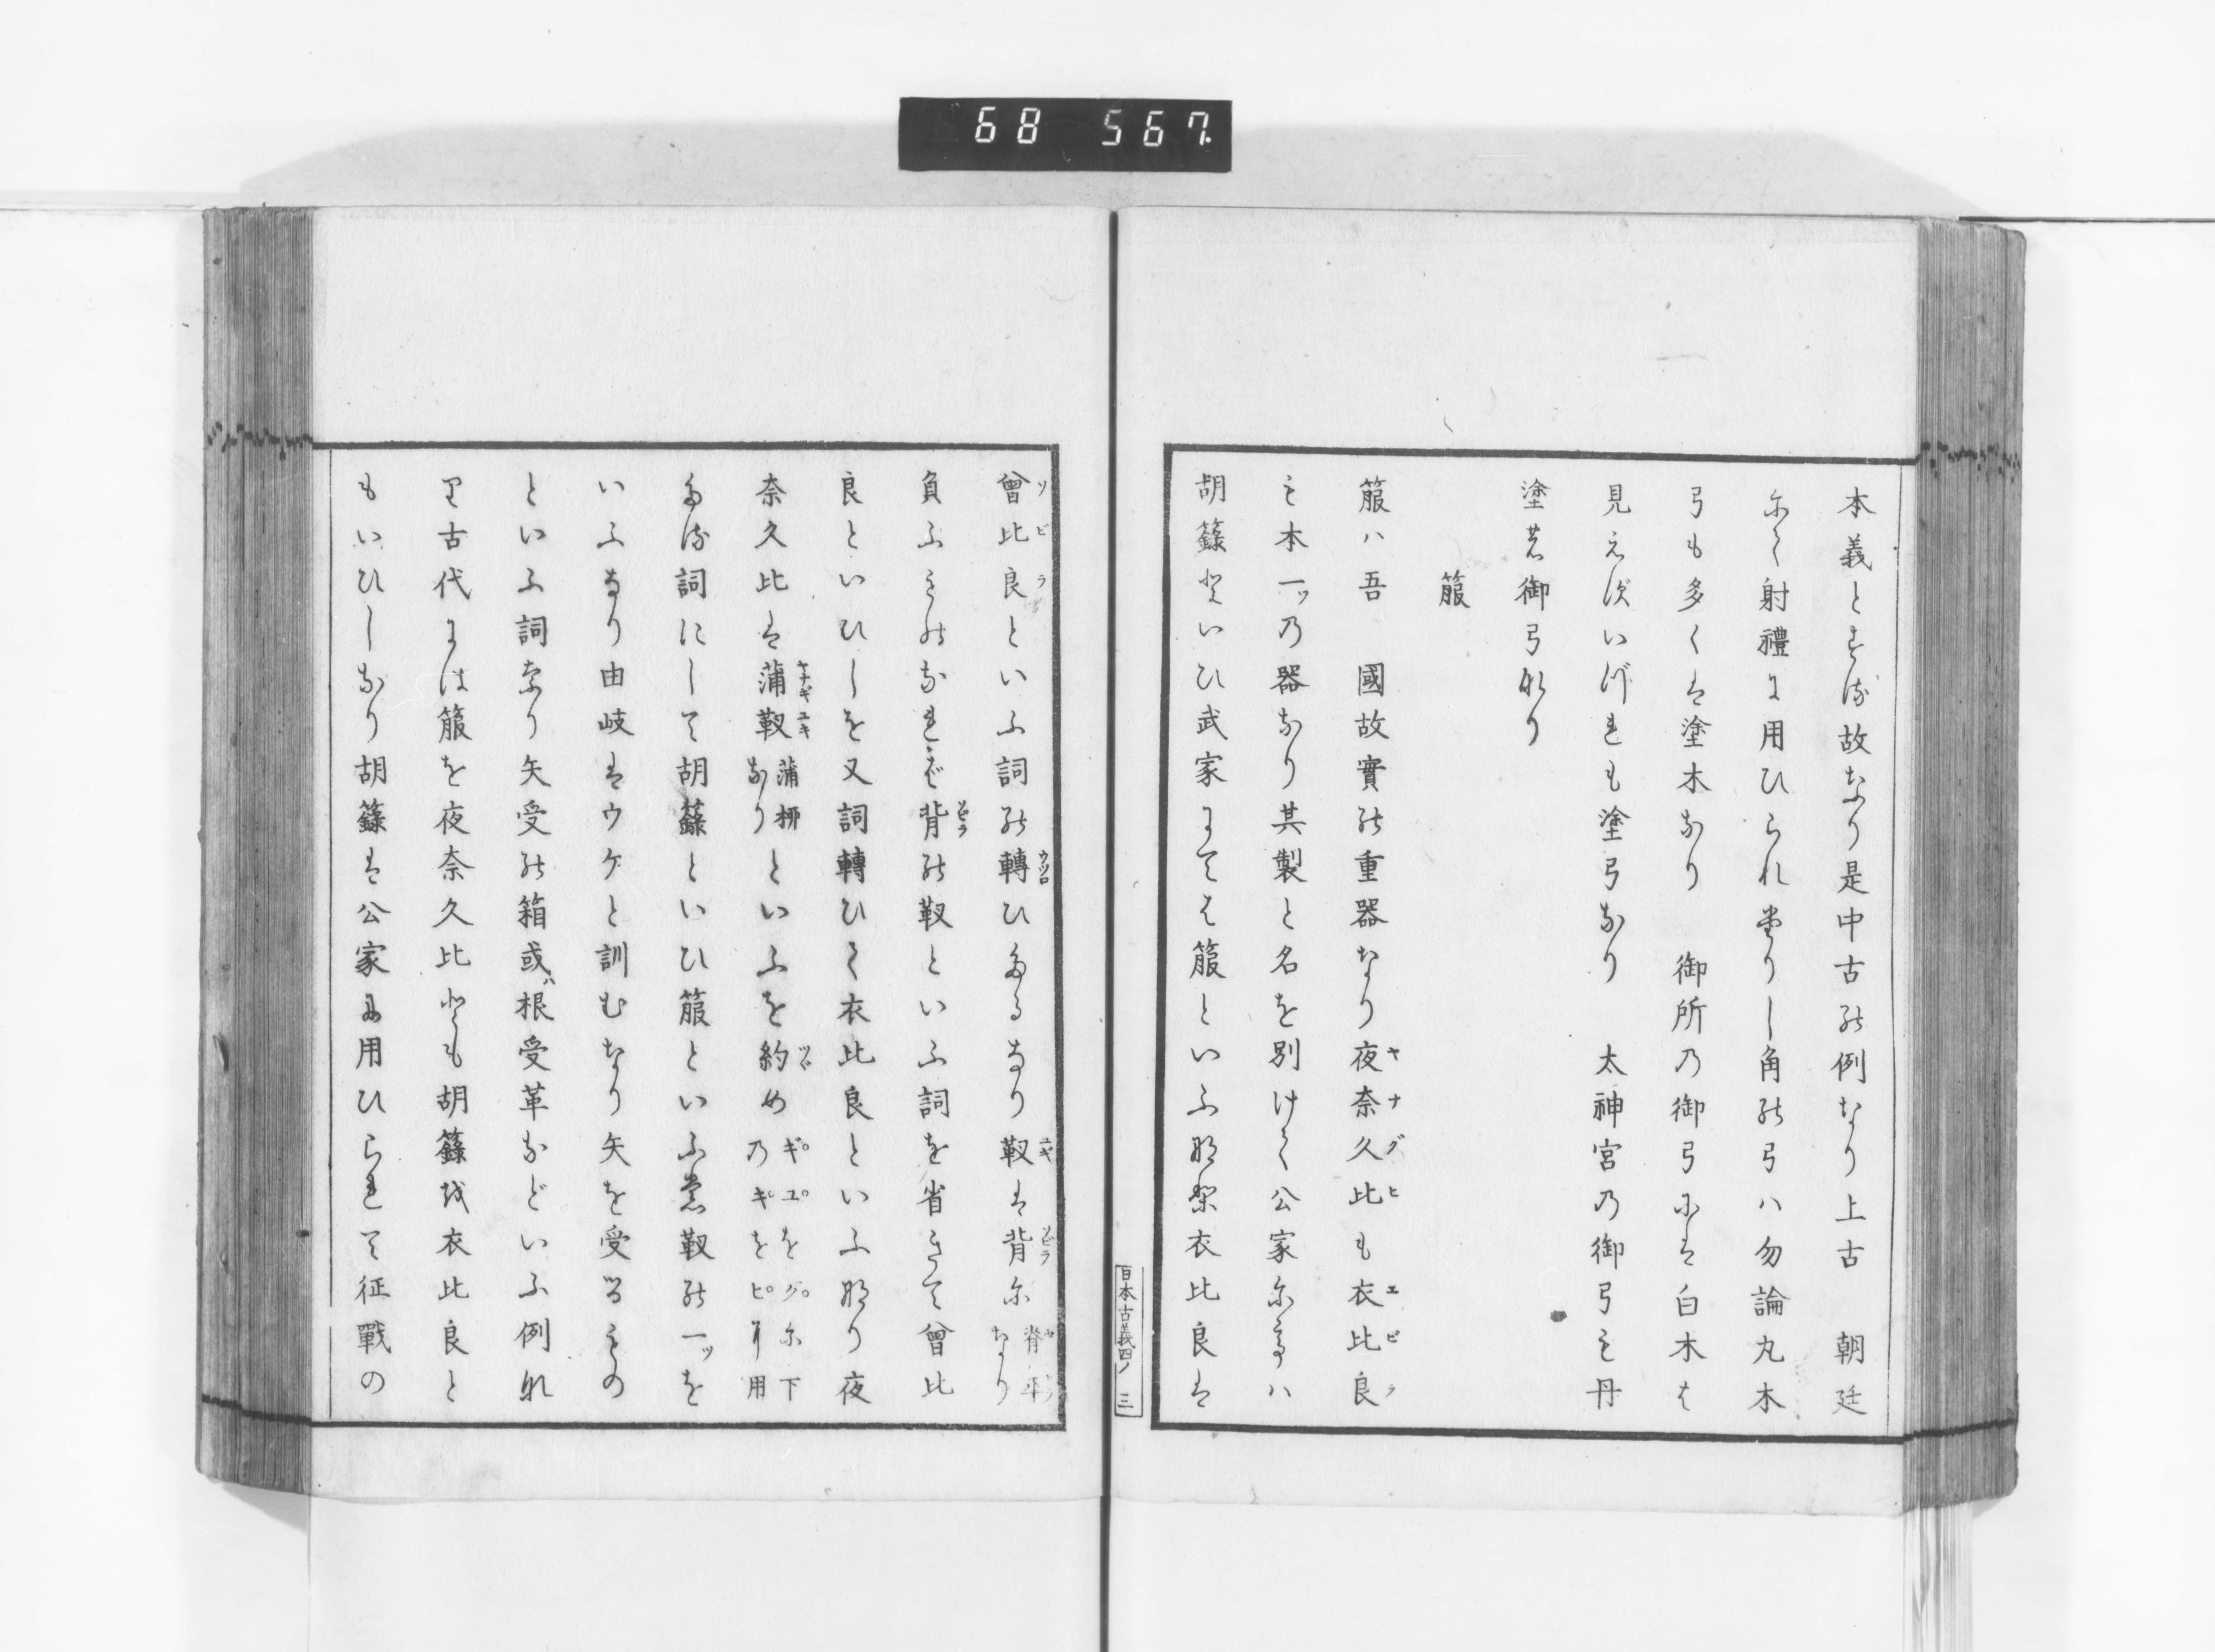 68 567
本義とする故なり是中古の例なり上古 朝廷
にて射禮に用ひられ来りし角の弓ハ勿論丸木
弓も多くは塗木なり 御所乃御弓には白木は
見えずいづれも塗弓なり 太神宮乃御弓も丹
塗の御弓なり
箙
箙ハ吾 國故實の重器なり夜奈久比も衣比良
も本一ッ乃器なり其製と名を別けて公家にてハ
胡籙といひ武家にては箙といふ那り衣比良は
日本古義四ノ 三
曾比良といふ詞の轉ひたるなり靫は背に 脊平なり
負ふものなれば背の靫といふ詞を省きて曾比
良といひしを又詞轉ひて衣比良といふ那り夜
奈久比は蒲靫 蒲柳なり といふを約め ギユをグに下乃キをヒに用
たる詞にして胡籙といひ箙といふ者靫の一ッを
いふなり由岐はウケと訓むなり矢を受るもの
といふ詞なり矢受の箱或ハ根受革などいふ例な
り古代には箙を夜奈久比とも胡籙を衣比良と
もいひしなり胡籙は公家に用ひられて征戰の